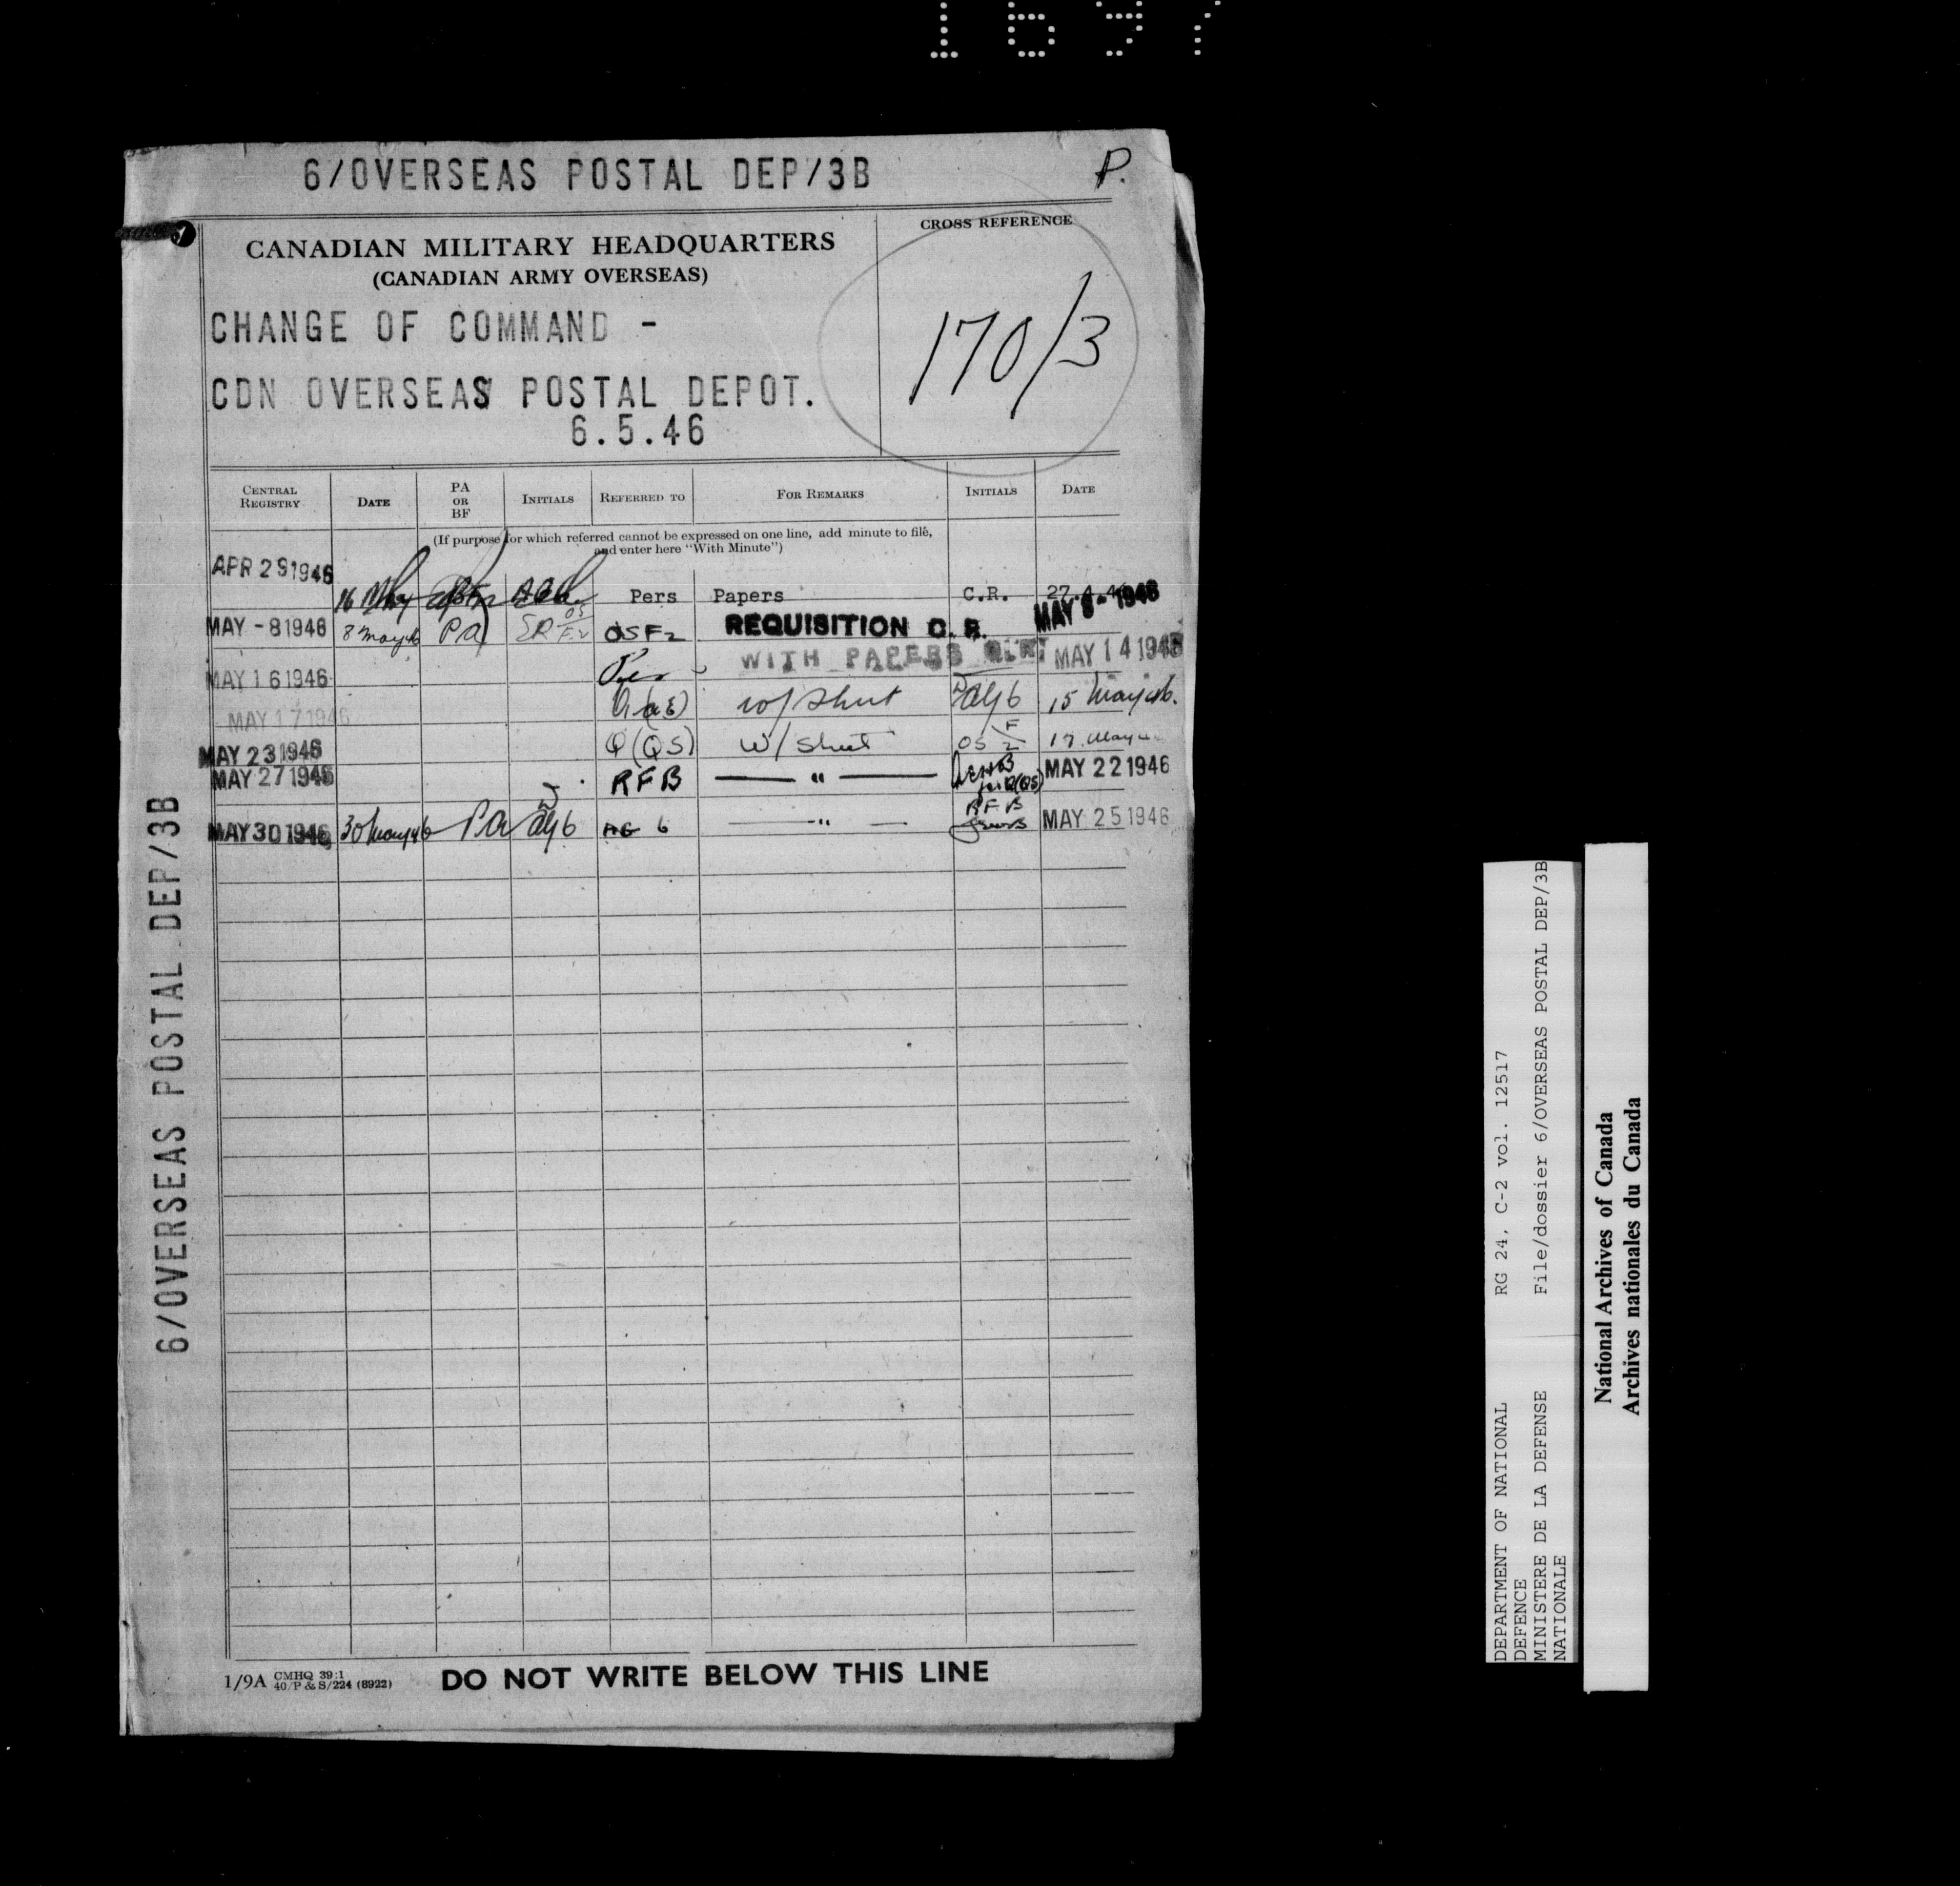 1697
6/OVERSEAS POSTAL DEP/3B
P.
CANADIAN MILITARY HEADQUARTERS
(CANADIAN ARMY OVERSEAS)
CROSS REFERENCE
170/3
CHANGE OF COMMAND -
CDN OVERSEAS POSTAL DEPOT.
6.5.46
CENTRAL REGISTRY DATE PA OR BF INITIALS REFERRED TO FOR REMARKS INITIALS DATE
(If purpose for which referred cannot be expressed on one line, add minute to file,
and enter here "With Minute")
APR 29 1946 16 May Pers Papers C.R. 27.4.46
MAY -8 1946 8 May 46 PA OSF2 REQUISITION C.R. MAY 8- 1946
MAY 16 1946 WITH PAPERS MAY 14 1946
MAY 17 1946 w/ Sheet 15 May 46.
MAY 23 1946 Q(QS) w/ Sheet OS F 2 17 May
MAY 27 1946 RFB — " — MAY 22 1946
MAY 30 1946 30 May 46 PA AG 6 — " — RFB MAY 25 1946
6/OVERSEAS POSTAL DEP/3B
1/9A CMHQ 39:1
40/P & S/224 (8922)
DO NOT WRITE BELOW THIS LINE
DEPARTMENT OF NATIONAL
DEFENCE
MINISTERE DE LA DEFENSE
NATIONALE
RG 24, C-2 vol. 12517
File/dossier 6/OVERSEAS POSTAL DEP/3B
National Archives of Canada
Archives nationales du Canada